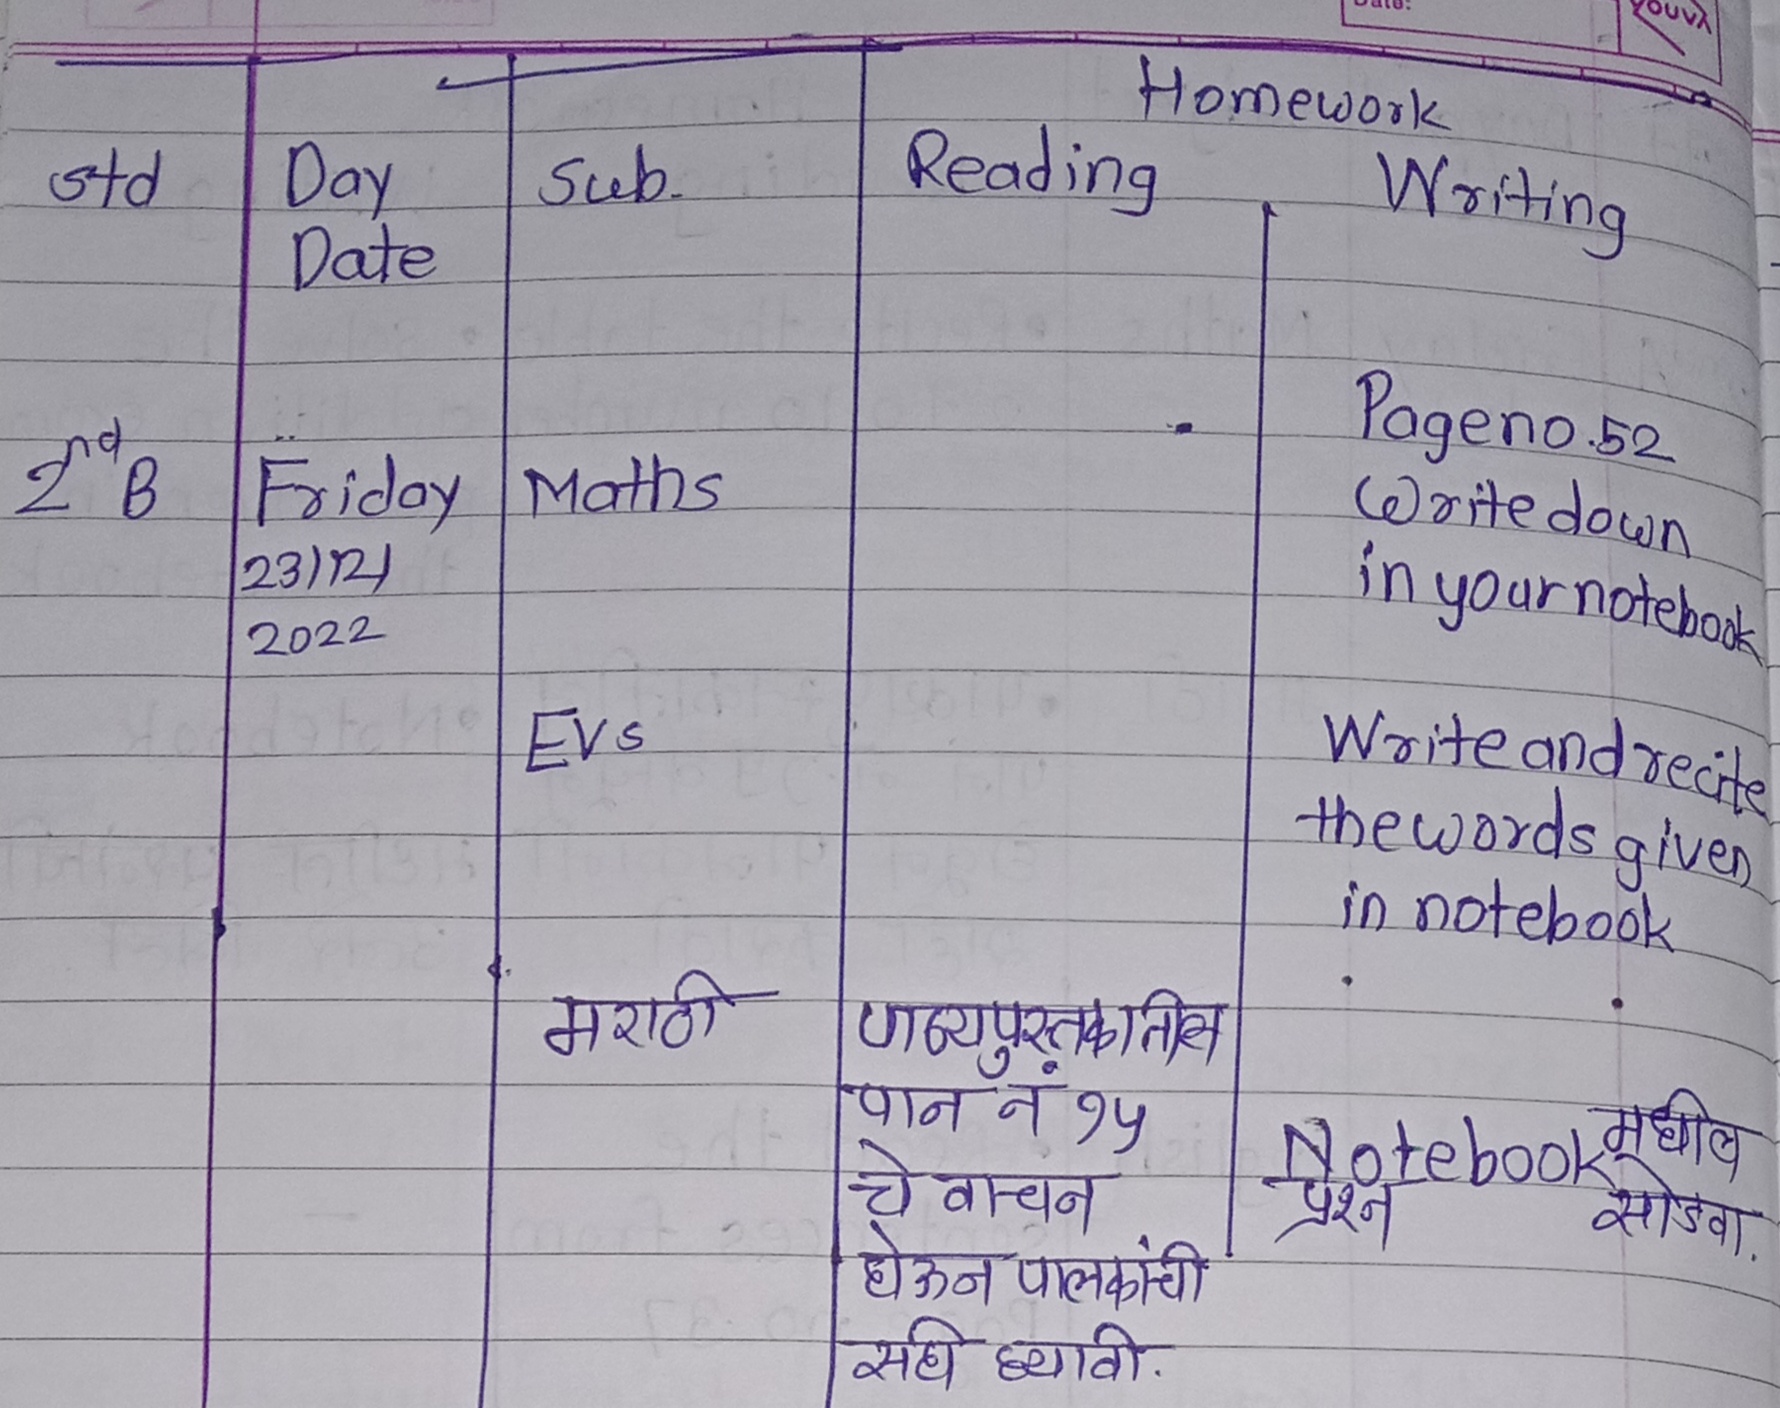 Date:
YOUVA
Homework
Std Day Sub. Reading Writing
Date
Page no. 52
2nd B Friday Maths Write down
23/12/ in your notebook
2022
EVS Write and recite
the words given
in notebook
मराठी पाठ्यपुस्तकातील
पान नं १५ Notebook मधील
चे वाचन प्रश्न सोडवा.
घेऊन पालकांची
सही घ्यावी.